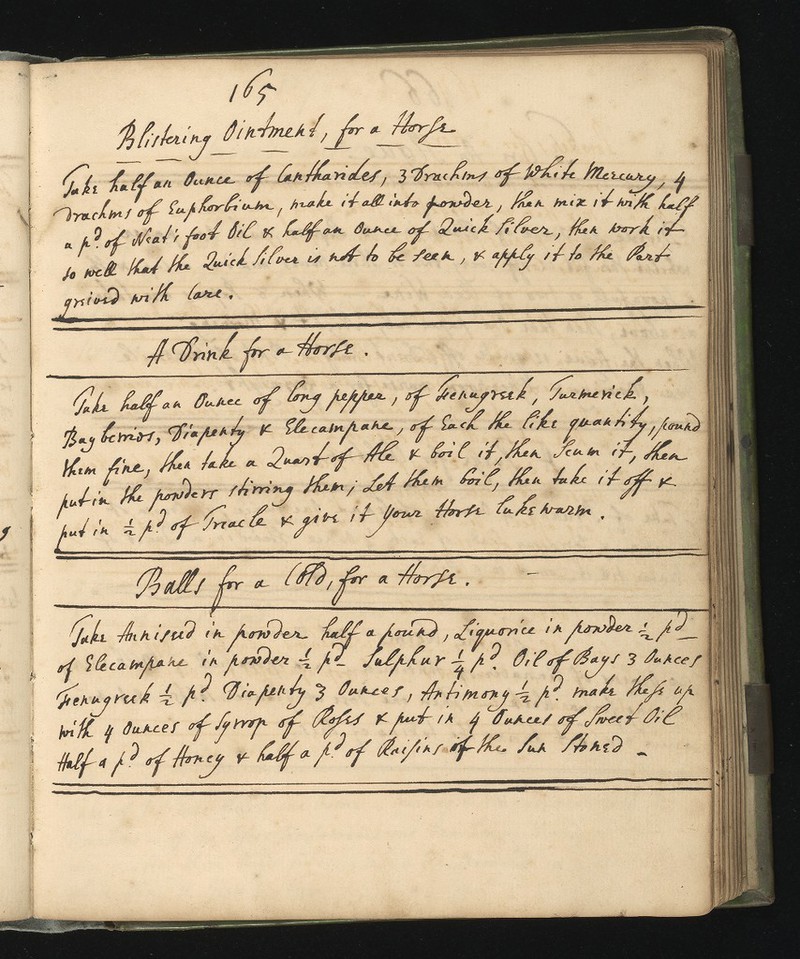 165
Blistering Ointment, for a Horse
Take half an Ounce of Cantharides, 3 Drachms of White Mercury, 4
Drachms of Euphorbium, make it all into powder, then mix it with half
a pd. of Neat's foot Oil & half an Ounce of Quick Silver, then work it
so well that the Quick Silver is not to be seen, & apply it to the Part
greived with Care.
A Drink for a Horse.
Take half an Ounce of long pepper, of Fenugreek, Turmerick,
Bayberries, Diapenty & Elecampane, of Each the like quantity, pound
them fine, then take a Quart of Ale & boil it, then Scum it, then
put in the powders stirring them; Let them boil, then take it off &
put in ½ pd. of Treacle & give it your Horse lukewarm.
Balls for a Cold, for a Horse.
Take Anniseed in powder half a pound, Liquorice in powder ½ pd
of Elecampane in powder ½ pd Sulphur ¼ pd. Oil of Bays 3 Ounces
Fenugreek ½ pd. Diapenty 3 Ounces, Antimony ½ pd. make these up
with 4 Ounces of Syrrop of Roses & put in 4 Ounces of Sweet Oil
Half a pd. of Honey & half a pd. of Raisins of the Sun Stoned